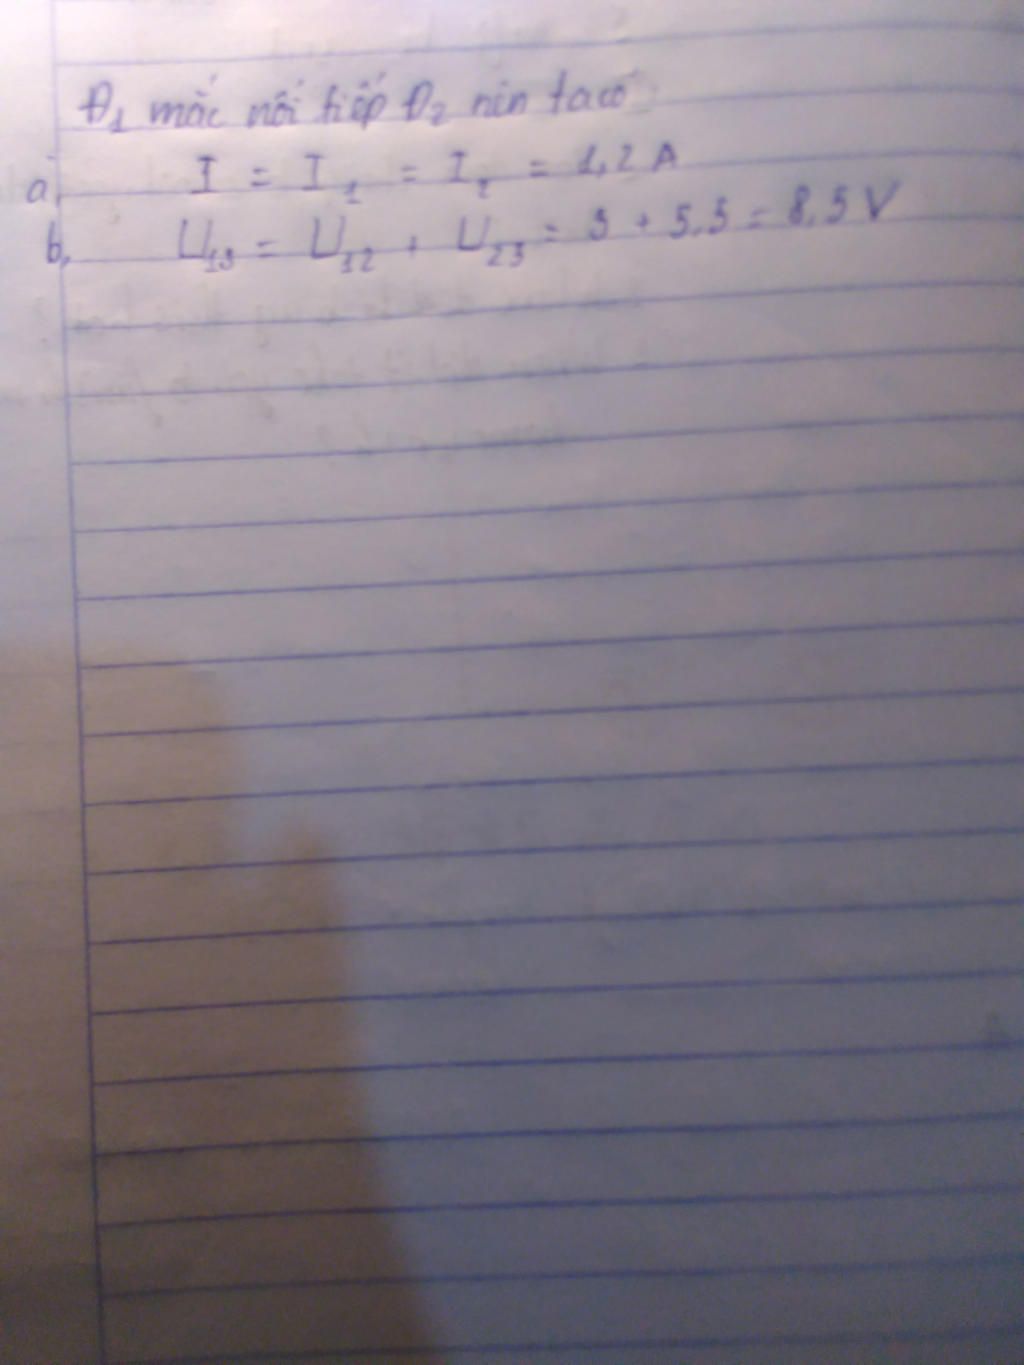 Đ1 mắc nối tiếp Đ2 nên ta có
a, I = I1 = I2 = 1,2 A
b, U13 = U12 + U23 = 3 + 5,5 = 8,5 V